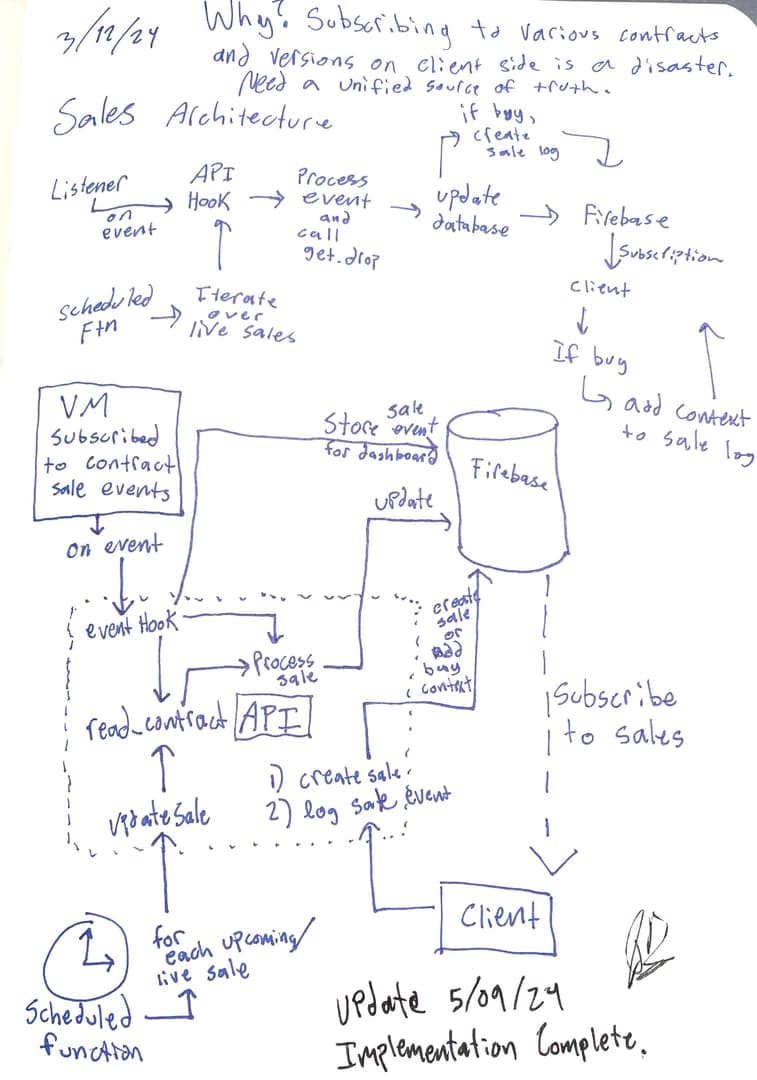 3/12/24
Why? Subscribing to various contracts
and versions on client side is a disaster.
Need a unified source of truth.
Sales Architecture
if buy,
create
sale log
Listener
on
event
API
Hook
Process
event
and
call
get_drop
update
database
Firebase
Subscription
client
If buy
add context
to sale log
Scheduled
Ftn
Iterate
over
live sales
VM
Subscribed
to contract
sale events
on event
sale
Store event
for dashboard
Firebase
update
event Hook
Process
sale
create
sale
or
add
buy
context
read_contract
API
1) create sale
2) log sale event
Update Sale
Subscribe
to sales
Client
for
each upcoming/
live sale
Scheduled
function
Update 5/09/24
Implementation Complete.